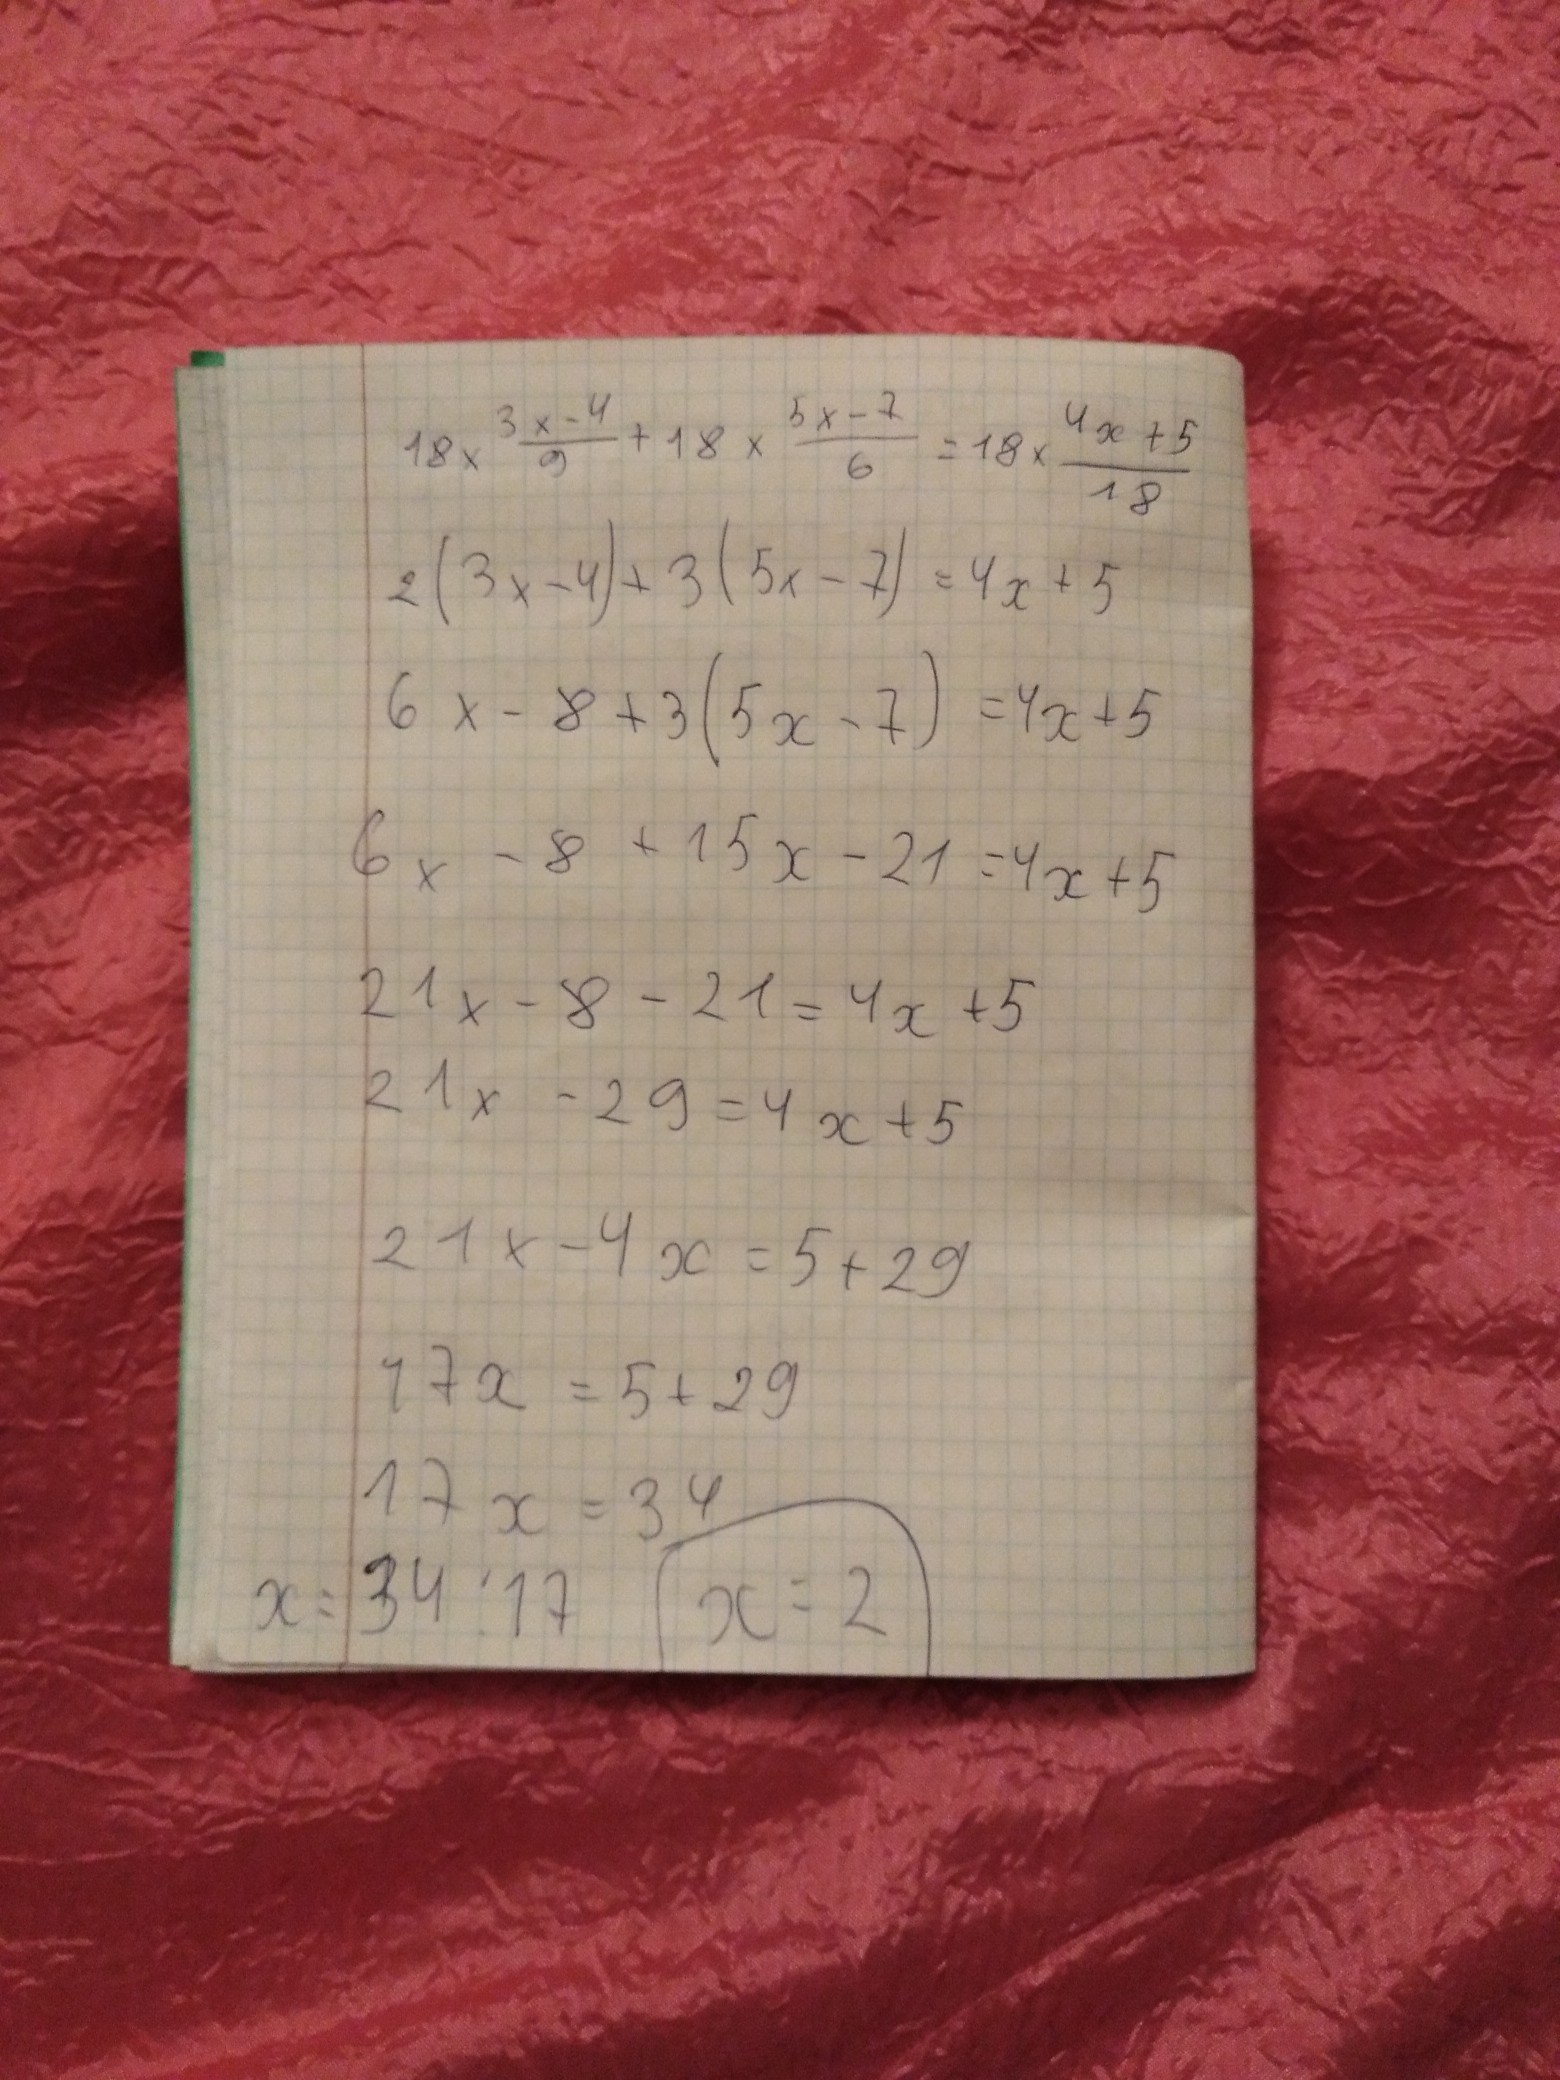 18 × \frac{3x-4}{9} + 18 × \frac{5x-7}{6} = 18 × \frac{4x+5}{18}
2(3x-4)+3(5x-7)=4x+5
6x-8+3(5x-7)=4x+5
6x-8+15x-21=4x+5
21x-8-21=4x+5
21x-29=4x+5
21x-4x=5+29
17x=5+29
17x=34
x=34:17 x=2